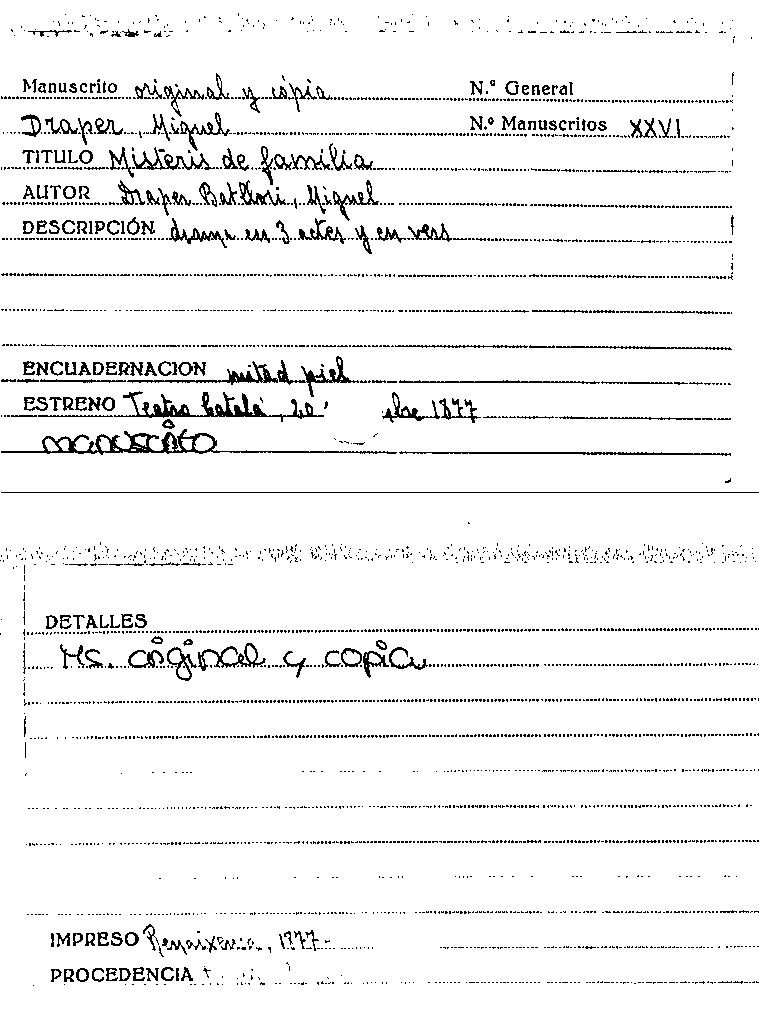 Manuscrito original y copia N.º General
Draper, Miguel N.º Manuscritos XXVI
TITULO Misteris de familia
AUTOR Draper Batllori, Miguel
DESCRIPCIÓN drama en 3 actes y en vers
ENCUADERNACION mitad piel
ESTRENO Teatro Catalá, 20 bre 1877
manuscrito
DETALLES
Ms. original y copia
IMPRESO Renaixensa, 1877-
PROCEDENCIA